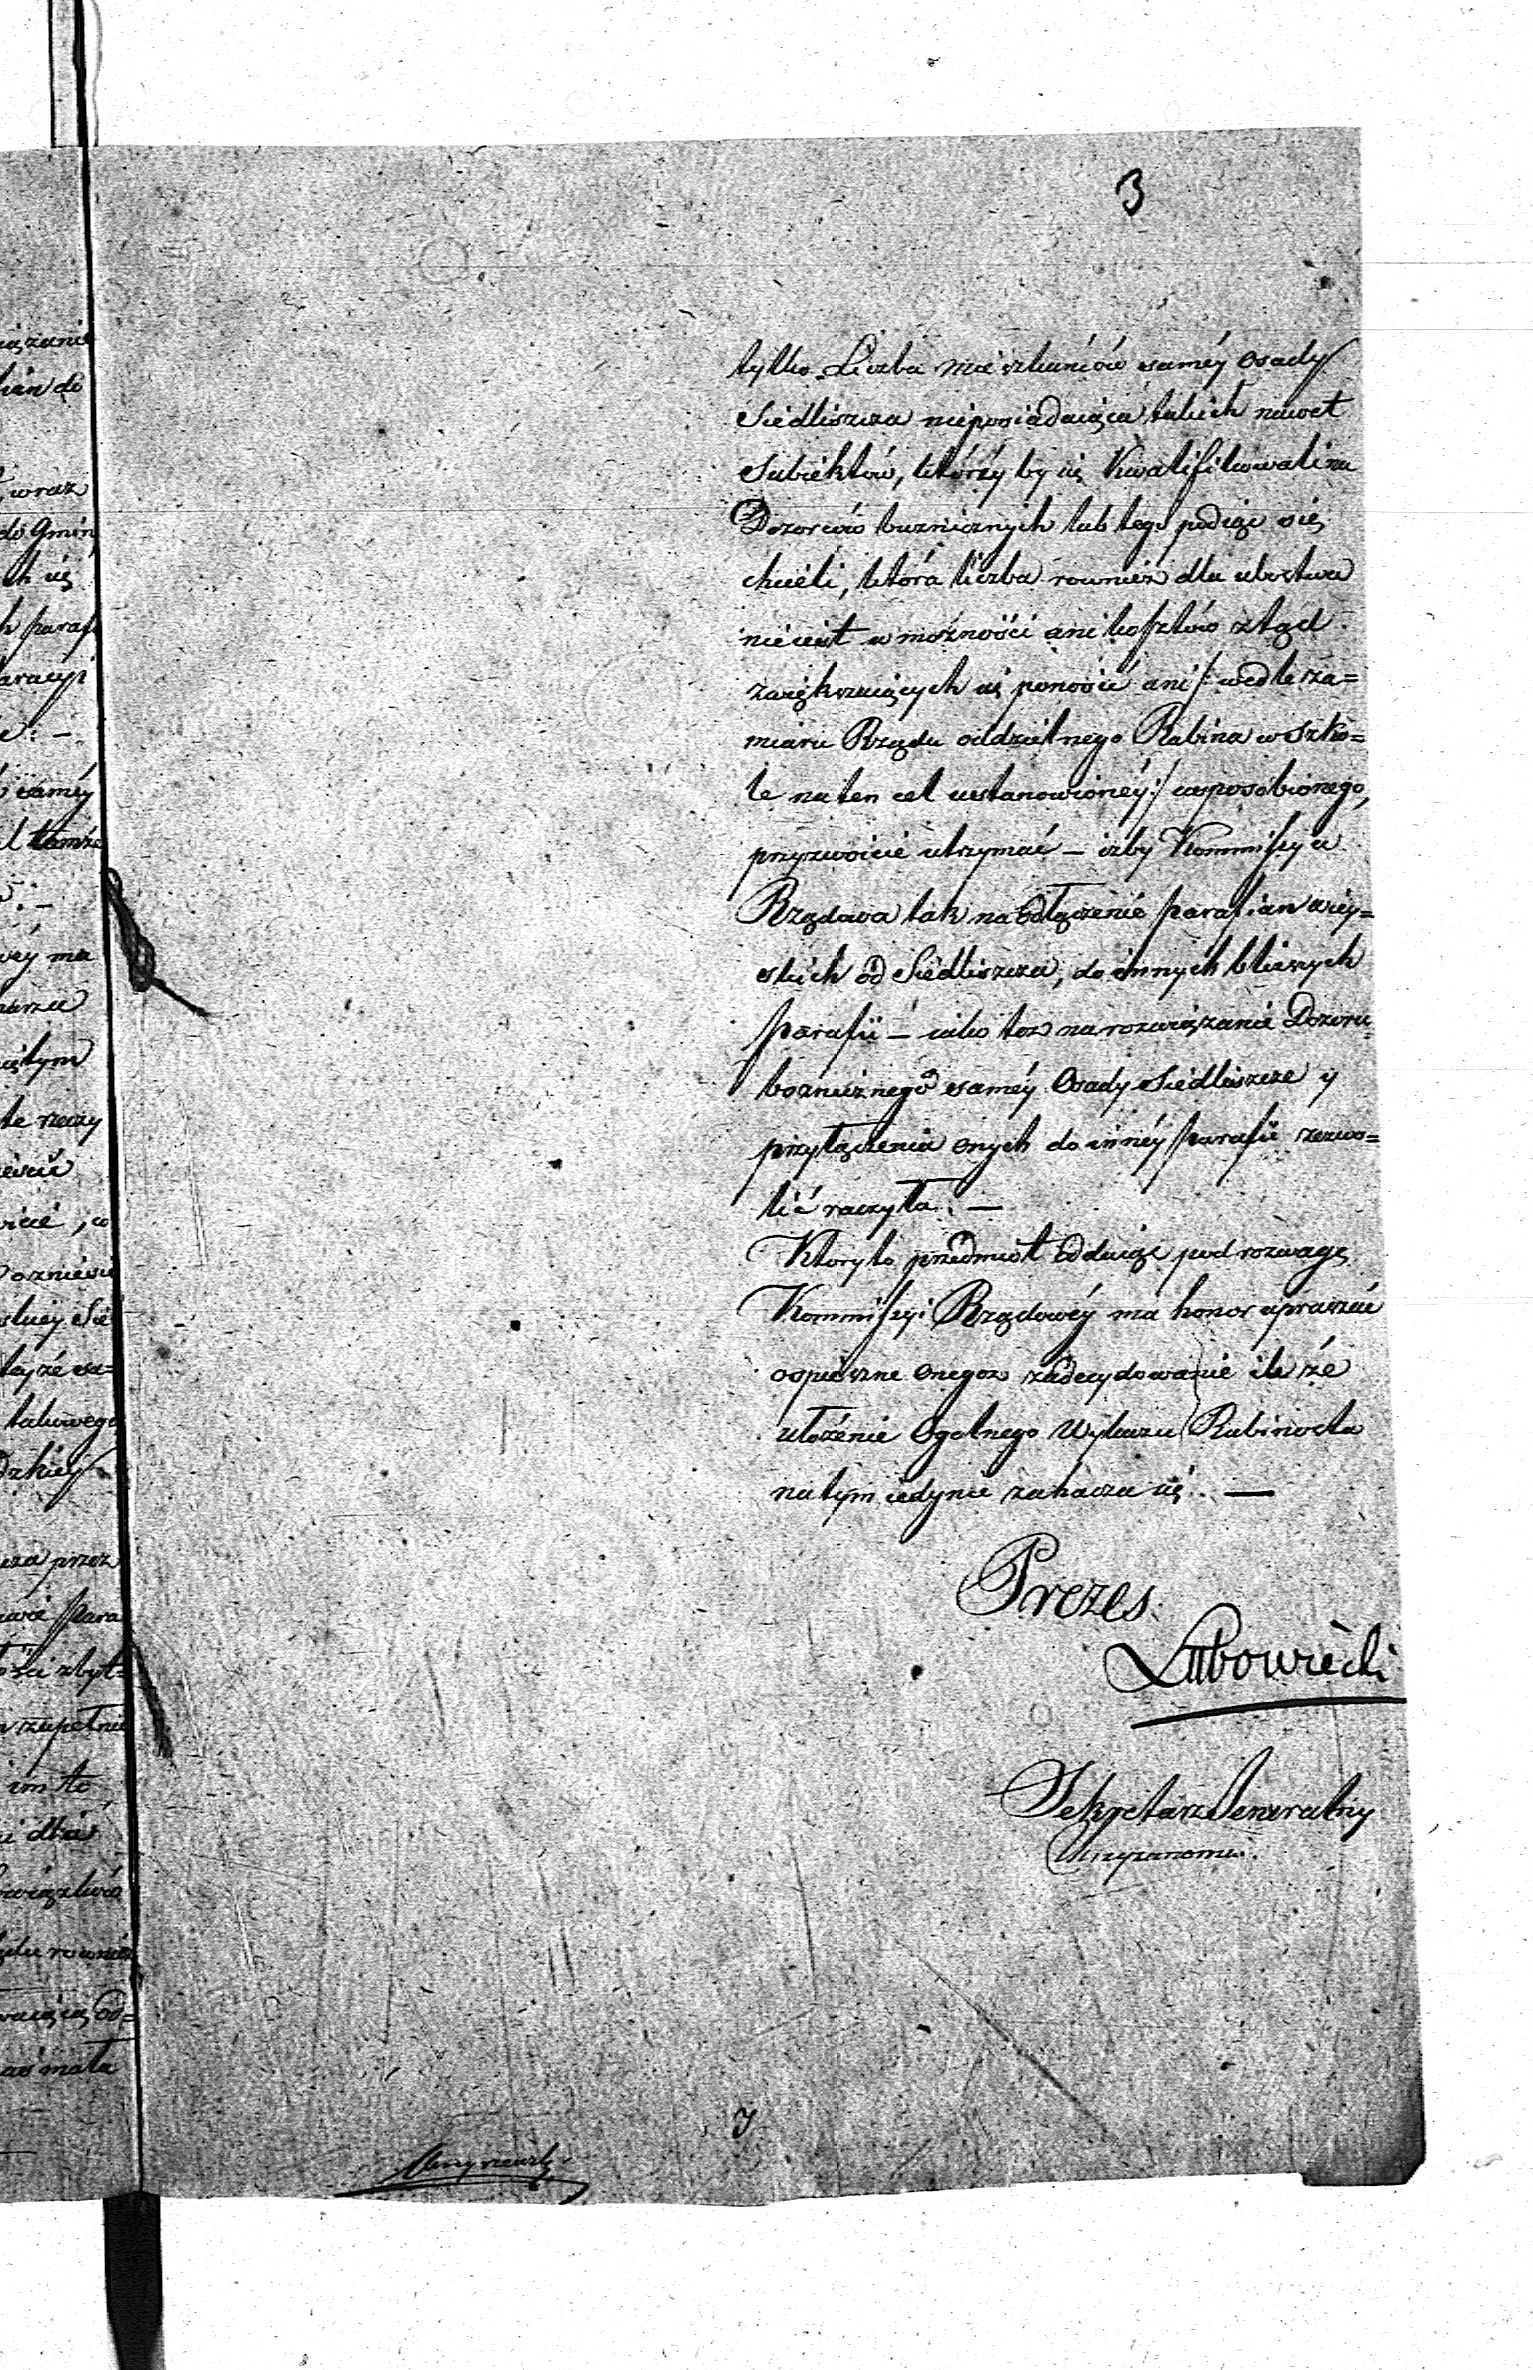 3
tylko Liczba mieszkańców saméy Osady
Siedliszcza nieposiadaiąca takich nawet
Subiektów, którzy by się Kwalifikowali na
Dozorców buznicznych lub tego podiąć się
chcieli, która liczba rownież dla ubostwa
nie iest w możności ani kosztów ztąd
zwiększaiących się ponosić ani /: wedle za=
miaru Rządu oddzielnego Rabina w szko=
le na ten cel ustanowionéy :/ usposobionego,
przyzwoicie utrzymać – iżby Kommissya
Rządowa tak na Odłączenie parafian wiey=
skich od Siedliszcza, do innych bliższych
parafii – iako też na rozwiązanie Dozoru
boznicznego saméy Osady Siedliszcze y
przyłączenia onych do innéy parafii zezwo=
lić raczyła. —
Który to przedmiot Oddaiąc pod rozwagę
Kommissyi Rządowéy ma honor upraszać
o spieszne onegoż zadecydowanie ile że
ułożenie Ogolnego Wykazu Rabinostw
na tym iedynie zahacza się. —
Prezes
Lubowiecki
Sekretarz Jeneralny